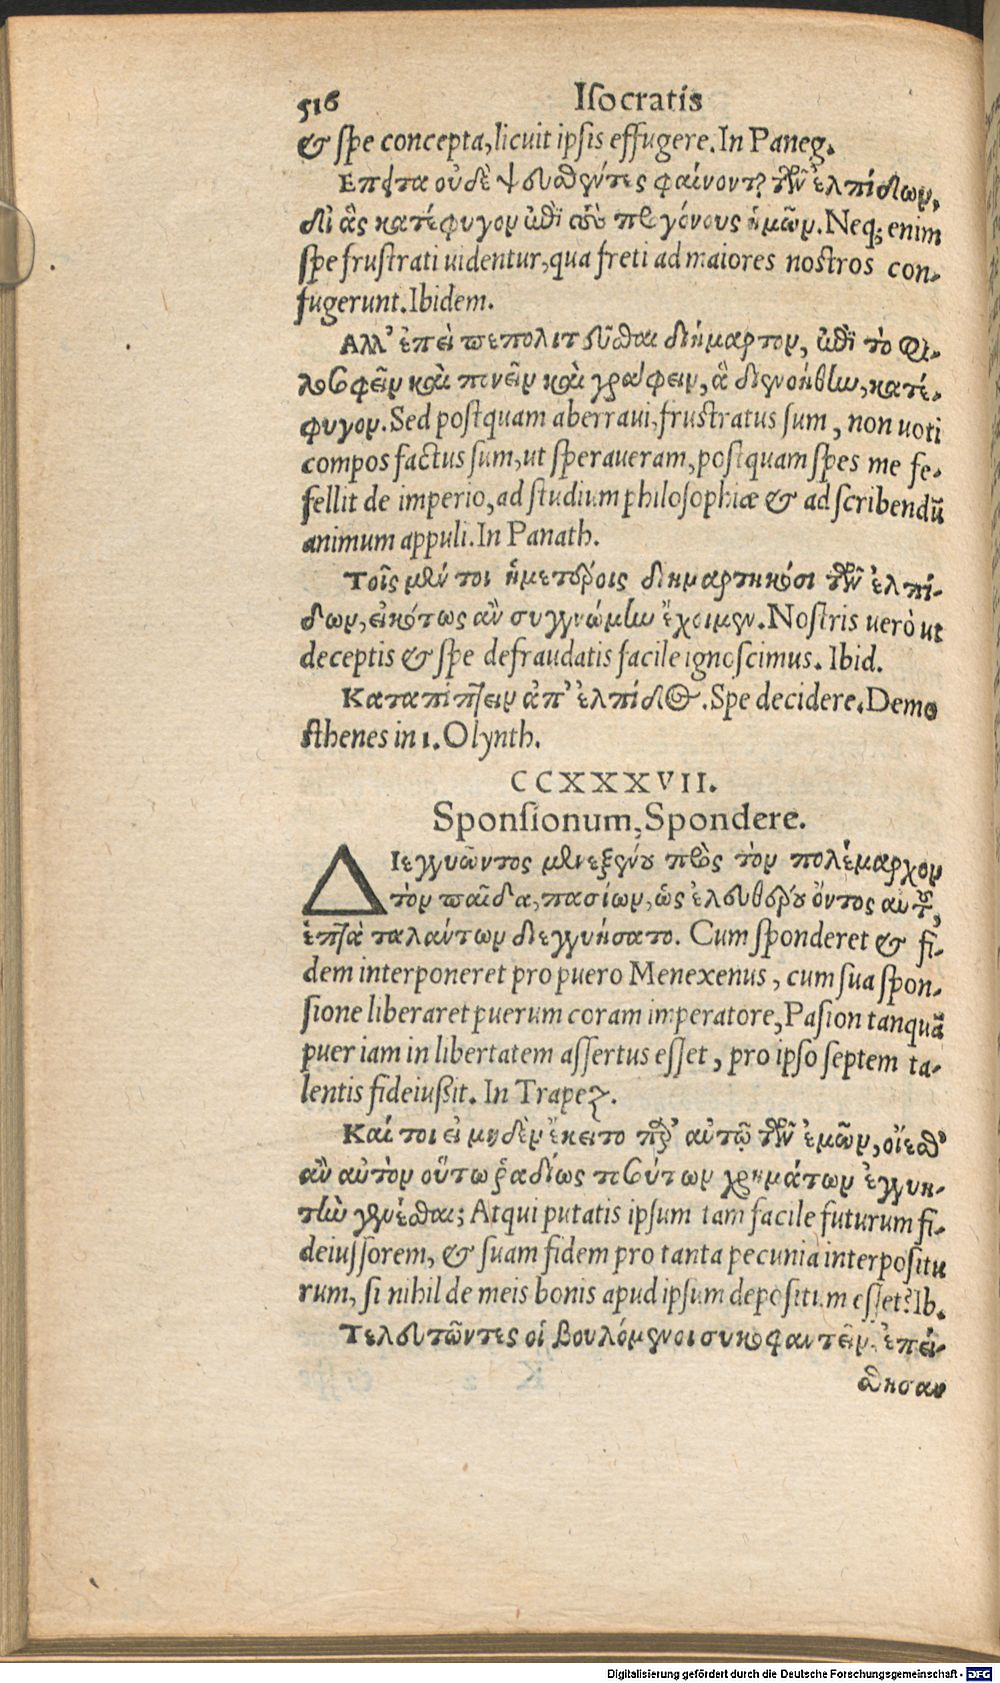 516 Isocratis
& spe concepta, licuit ipsis effugere. In Paneg.
Επειτα οὐδὲ ψευσθέντες φαίνονται τῶν ἐλπίδων,
δι' ἃς κατέφυγον ἐπὶ τοὺς προγόνους ἡμῶν. Neq; enim
spe frustrati uidentur, qua freti ad maiores nostros con-
fugerunt. Ibidem.
Αλλ' ἐπεὶ πεπολιτεῦσθαι διήμαρτον, ἐπὶ τὸ φι-
λοσοφεῖν καὶ πονεῖν καὶ γράφειν, ἃ διενοήθην, κατέ-
φυγον. Sed postquam aberraui, frustratus sum, non uoti
compos factus sum, ut speraueram, postquam spes me fe-
fellit de imperio, ad studium philosophiæ & ad scribendũ
animum appuli. In Panath.
Τοῖς μέν τοι ἡμετέροις διημαρτηκόσι τῶν ἐλπί-
δων, εἰκότως ἂν συγγνώμην ἔχοιμεν. Nostris uerò ut
deceptis & spe defraudatis facile ignoscimus. Ibid.
Καταπίπτειν ἀπ' ἐλπίδος. Spe decidere. Demo
sthenes in 1. Olynth.
CCXXXVII.
Sponsionum, Spondere.
ΔΙεγγυῶντος μενεξένου πρὸς τὸν πολέμαρχον
τὸν παῖδα, πασίων, ὡς ἐλευθέρου ὄντος αὐτοῦ,
ἑπτὰ ταλάντων διεγγυήσατο. Cum sponderet & fi-
dem interponeret pro puero Menexenus, cum sua spon-
sione liberaret puerum coram imperatore, Pasion tanquã
puer iam in libertatem assertus esset, pro ipso septem ta-
lentis fideiußit. In Trapez.
Καί τοι εἰ μηδὲν ἔκειτο παρ' αὐτῷ τῶν ἐμῶν, οἴεσθ'
ἂν αὐτὸν οὕτω ῥαδίως τοσούτων χρημάτων ἐγγυη-
τὴν γενέσθαι; Atqui putatis ipsum tam facile futurum fi-
deiussorem, & suam fidem pro tanta pecunia interpositu
rum, si nihil de meis bonis apud ipsum depositum esset? Ib.
Τελευτῶντες οἱ βουλόμενοι συκοφαντεῖν, ἐπεί-
σθησαν
Digitalisierung gefördert durch die Deutsche Forschungsgemeinschaft - DFG